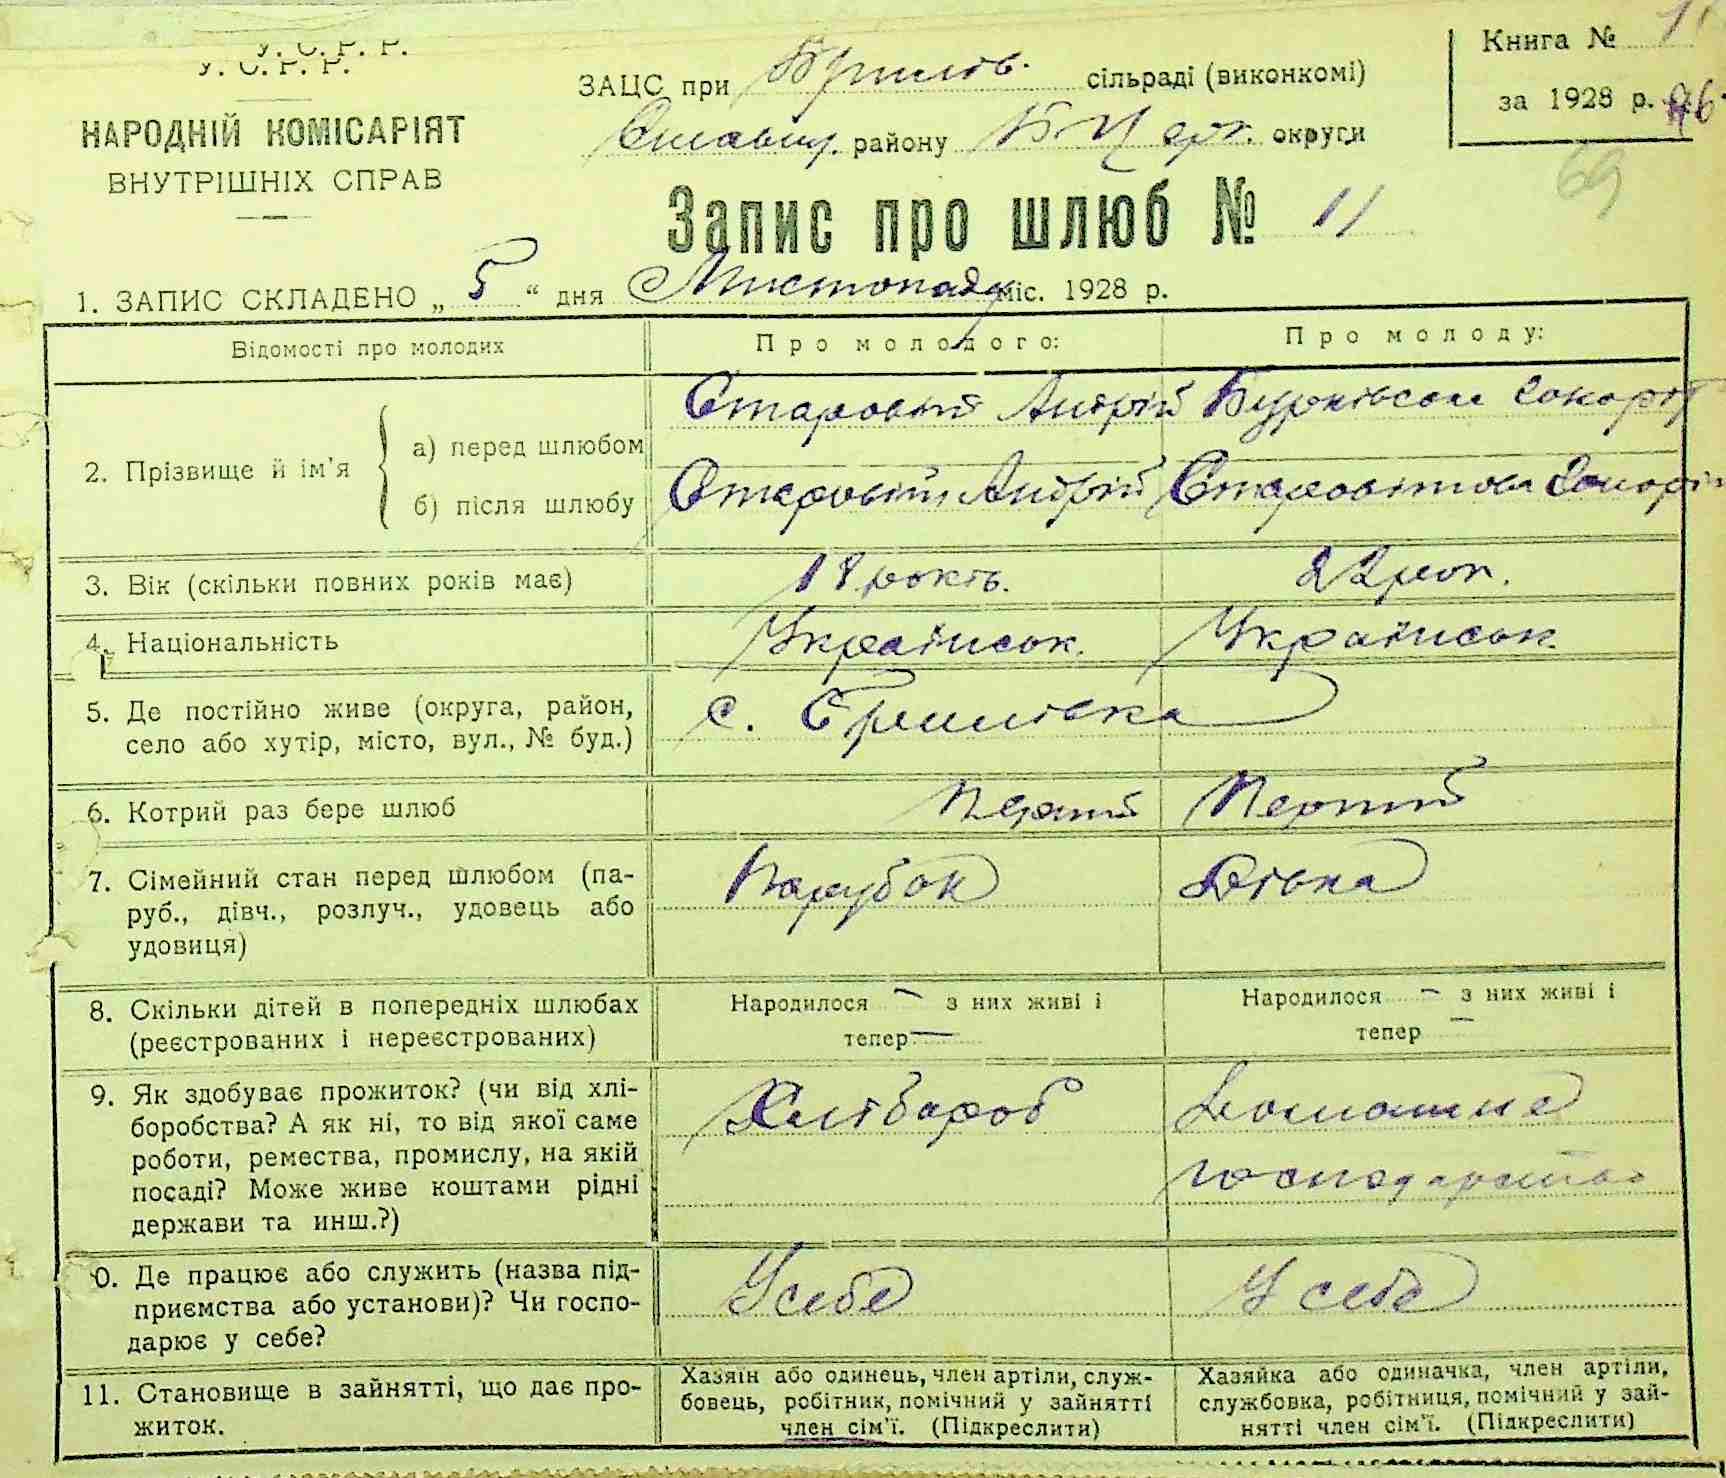 У. С. Р. Р.
У. С. Р. Р.
НАРОДНІЙ КОМІСАРІЯТ
ВНУТРІШНІХ СПРАВ
ЗАЦС при Брилів. сільраді (виконкомі)
Ставищ. району Б Церк. округи
Книга №
за 1928 р.
69
Запис про шлюб № 11
1. ЗАПИС СКЛАДЕНО „ 5 “ дня Листопаду міс. 1928 р.
Відомості про молодих
Про молодого:
Про молоду:
2. Прізвище й ім’я
а) перед шлюбом
Андрій
б) після шлюбу
Андрій
3. Вік (скільки повних років має)
18 років.
22 рок.
4. Національність
Українськ.
Українськ.
5. Де постійно живе (округа, район,
село або хутір, місто, вул., № буд.)
с. Брилівка
6. Котрий раз бере шлюб
Перший
Перший
7. Сімейний стан перед шлюбом (па-
руб., дівч., розлуч., удовець або
удовиця)
Парубок
Дівка
8. Скільки дітей в попередніх шлюбах
(реєстрованих і нереєстрованих)
Народилося — з них живі і
тепер —
Народилося — з них живі і
тепер —
9. Як здобуває прожиток? (чи від хлі-
боробства? А як ні, то від якої саме
роботи, ремества, промислу, на якій
посаді? Може живе коштами рідні
держави та инш.?)
Хлібороб
Домашнє
господарство
0. Де працює або служить (назва під-
приємства або установи)? Чи госпо-
дарює у себе?
У себе
У себе
11. Становище в зайнятті, що дає про-
житок.
Хазяїн або одинець, член артіли, служ-
бовець, робітник, помічний у зайнятті
член сім’ї. (Підкреслити)
Хазяйка або одиначка, член артіли,
службовка, робітниця, помічний у зай-
нятті член сім’ї. (Підкреслити)